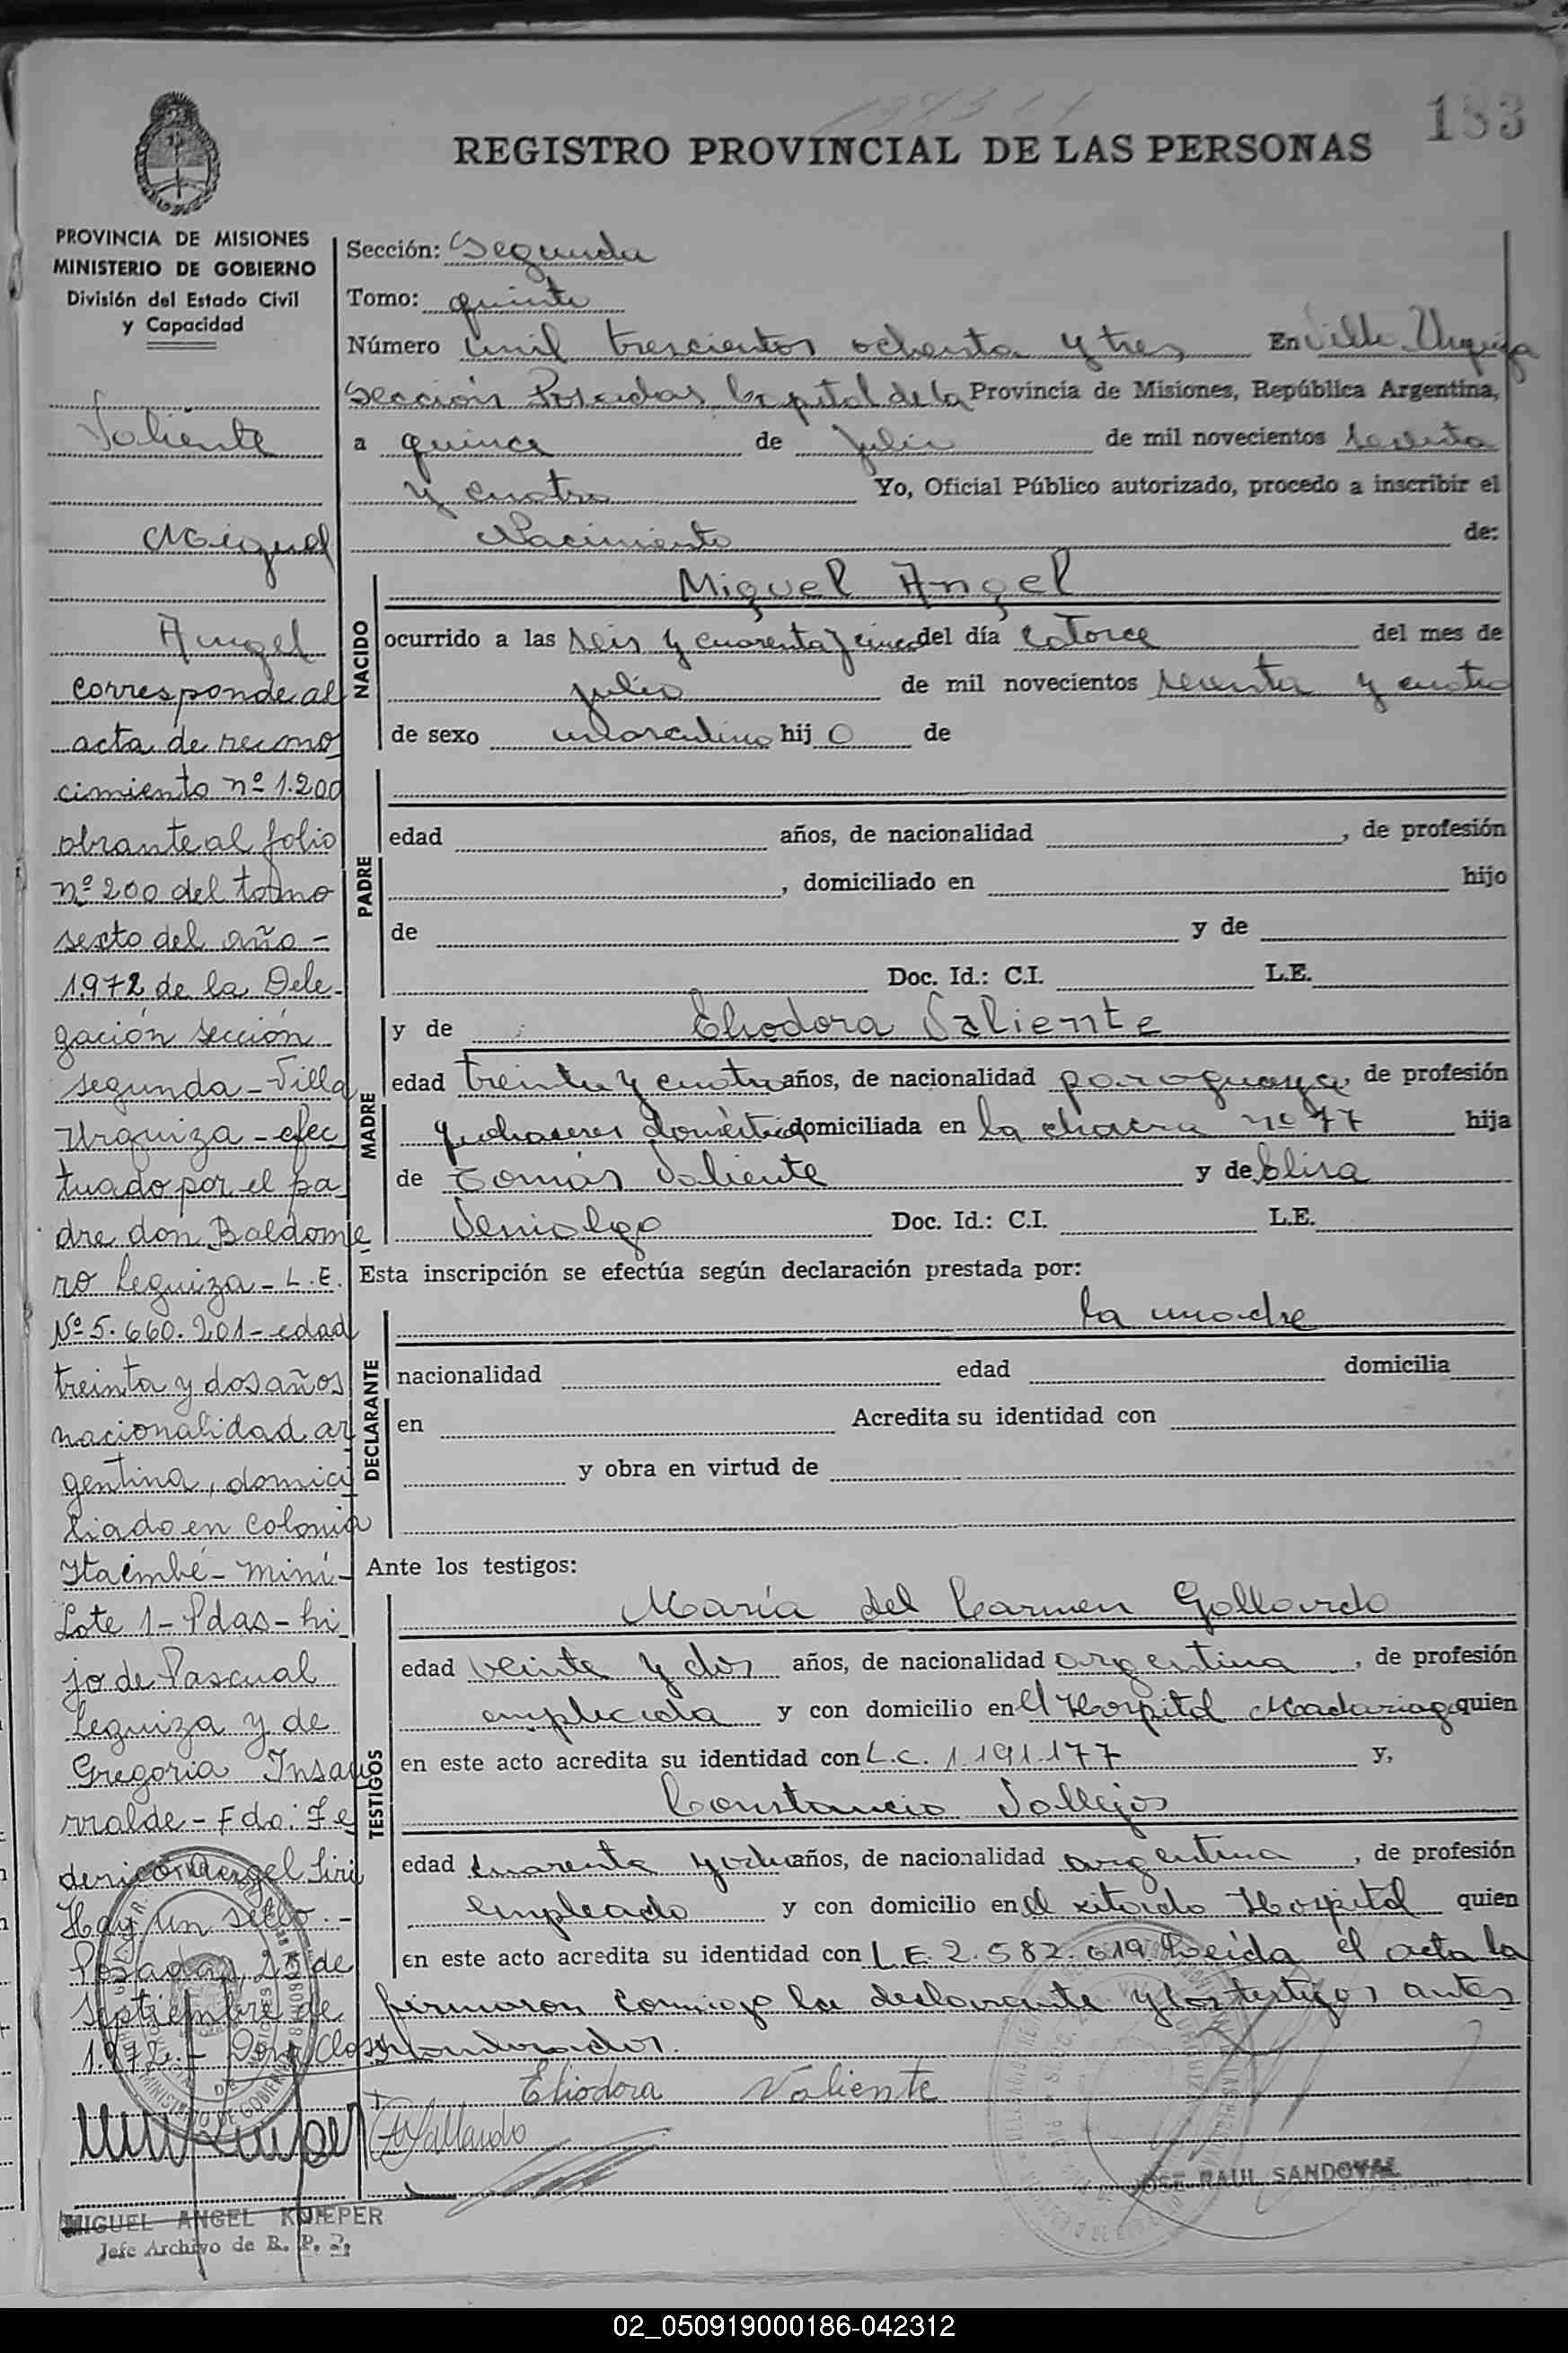 183
REGISTRO PROVINCIAL DE LAS PERSONAS
PROVINCIA DE MISIONES
MINISTERIO DE GOBIERNO
División del Estado Civil
y Capacidad
Valiente
Miguel
Angel
corresponde al
acta de recono
cimiento nº 1.200
obrante al folio
nº 200 del tomo
sexto del año -
1.972 de la Dele-
gación sección
segunda - Villa
Urquiza - efec
tuado por el pa-
dre don Baldome
ro Leguiza - L.E.
Nº 5.660.201 - edad
treinta y dos años
nacionalidad ar
gentina, domici
liado en Colonia
Itaimbé - Miní -
Lote 1 - Pdas - hi
jo de Pascual
Leguiza y de
Gregoria Insau
rralde - Fdo: Fe
derico Angel Siri
Hay un sello. -
Posadas, 25 de
septiembre de
1.972. -
MIGUEL ANGEL KNIEPER
Jefe Archivo de R. P. P.
Sección: Segunda
Tomo: quinto
Número mil trescientos ochenta y tres En Villa Urquiza
Sección Posadas Capital de la Provincia de Misiones, República Argentina,
a quince de julio de mil novecientos sesenta
y cuatro Yo, Oficial Público autorizado, procedo a inscribir el
Nacimiento de:
NACIDO
Miguel Angel
ocurrido a las seis y cuarenta y cinco del día catorce del mes de
julio de mil novecientos sesenta y cuatro
de sexo masculino hijo de
PADRE
edad años, de nacionalidad , de profesión
, domiciliado en hijo
de y de
Doc. Id.: C.I. L.E.
MADRE
y de Eliodora Valiente
edad treinta y cuatro años, de nacionalidad paraguaya, de profesión
quehaceres domésticos domiciliada en la chacra nº 77 hija
de Tomás Valiente y de Elisa
Doc. Id.: C.I. L.E.
Esta inscripción se efectúa según declaración prestada por:
DECLARANTE
la madre
nacionalidad edad domicilia
en Acredita su identidad con
y obra en virtud de
Ante los testigos:
TESTIGOS
María del Carmen Gallardo
edad veinte y dos años, de nacionalidad argentina, de profesión
empleada y con domicilio en el Hospital Madariaga quien
en este acto acredita su identidad con L.C. 1.191.177 y,
Constancio Vallejos
edad cuarenta y ocho años, de nacionalidad argentina, de profesión
empleado y con domicilio en el citado Hospital quien
en este acto acredita su identidad con L.E. 2.582.619. Leída el acta la
firmaron conmigo la declarante y los testigos antes
nombrados.
Eliodora Valiente
Gallardo
JOSE RAUL SANDOVAL
02_050919000186-042312